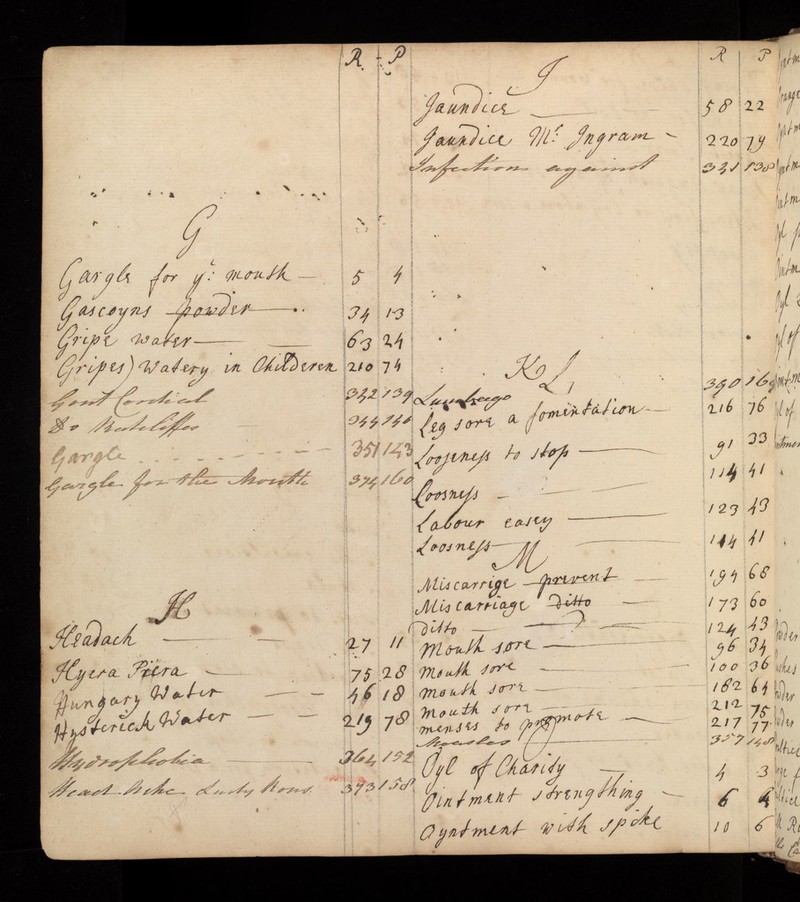 R P
G
Gargle for yͤ: mouth 5 4
Gascoyns powder 34 13
Gripe water 63 24
Gripes) watery in Childeren 210 74
Gout Cordial 342 139
Do Ratcliffes 344 140
Gargle 351 143
Gargle for the Mouth 374 160
H
Headach 27 11
Hyera Piera 75 28
Hungary Water 46 18
Hysterick Water 219 78
Hydrophobia 364 152
Head Ache Lady Rous 373 158
R P
J
Jaundice 58 22
Jaundice Mr Ingram 220 79
Infection against 341 138
K L
Lumbago 390 169
Leg sore a fomentation 216 76
Looseness to stop 91 33
Loosness 114 41
Labour easey 123 43
Loosness 114 41
M
Miscarrige prevent 194 68
Miscarriage ditto 173 60
ditto 124 43
Mouth sore 96 34
Mouth sore 100 36
mouth sore 182 64
mouth sore 212 75
menses to promote 217 77
Measles 357 148
O
Oyl of Charity 4 3
Ointment strengthing 6 4
Oyntment with spike 10 6